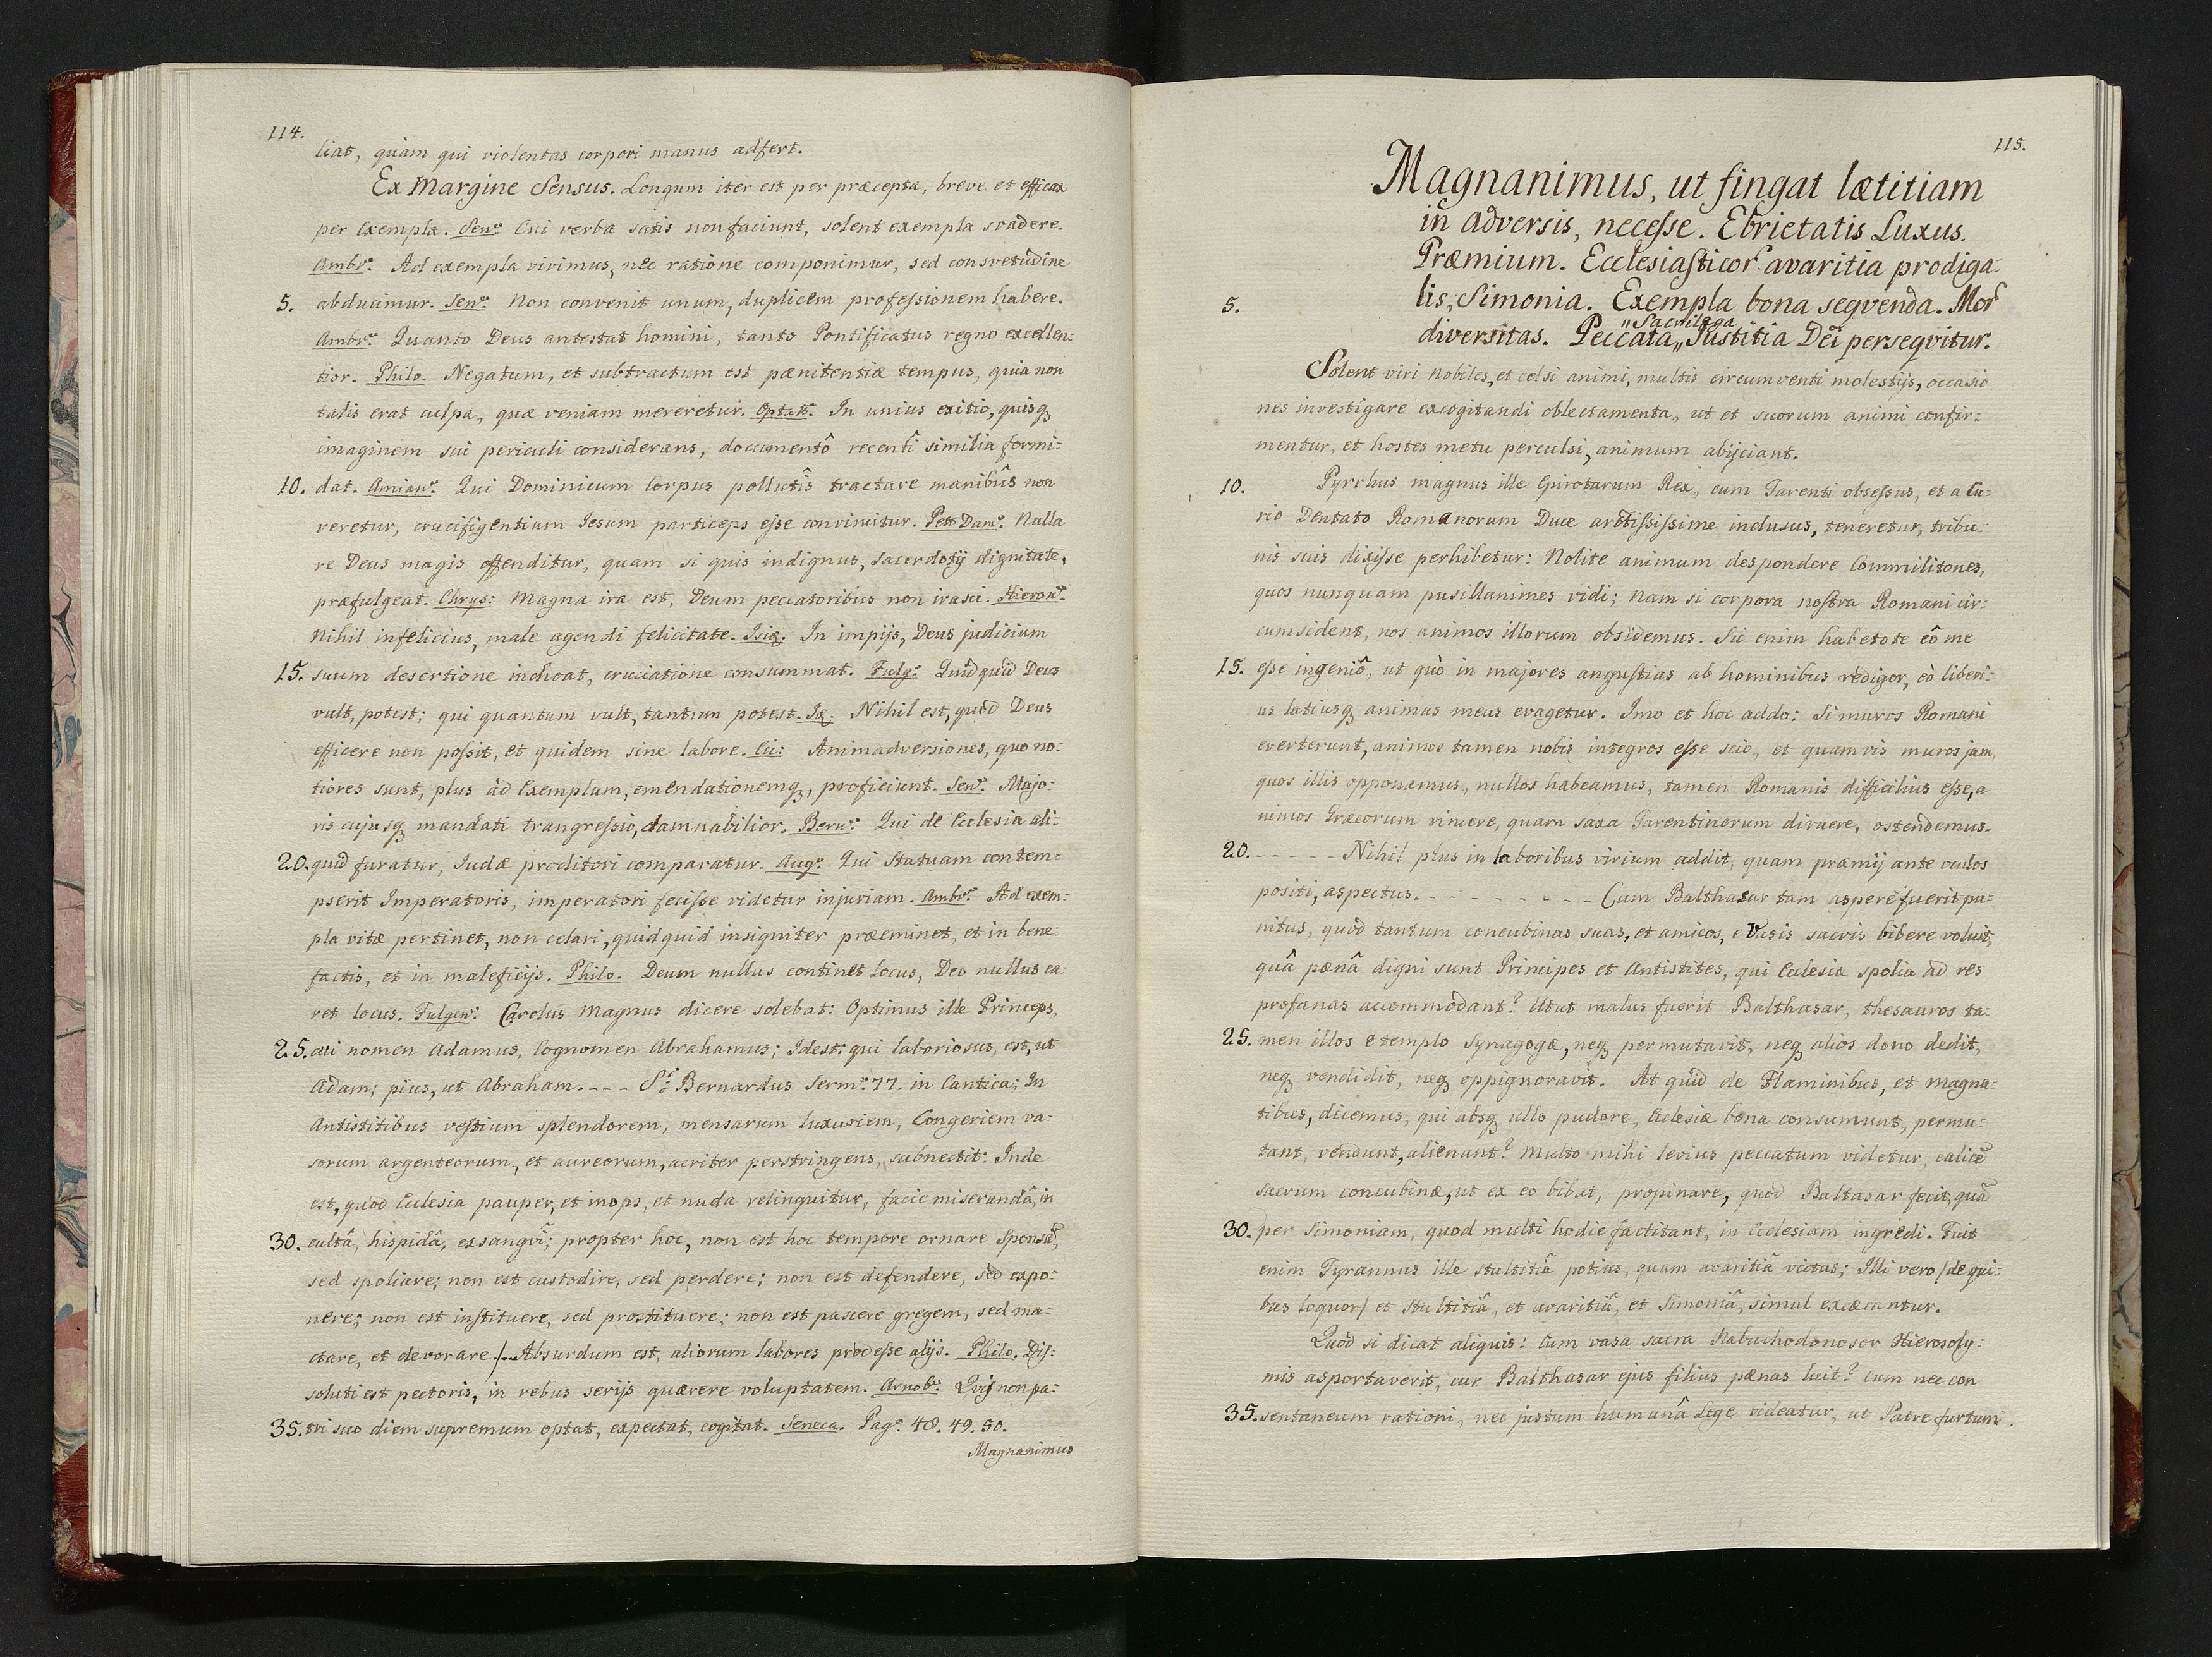 114.
liat, quàm qui violentas corpori manus adfert.
Ex Margine Sensus. Longum iter est per præcepta, breve et efficax
per Exempla. Senc: Cui verba satis non faciunt, solent exempla svadere.
Ambr: Ad exempla vivimus, nec ratione componimur, sed consvetudine
5. abducimur. Senc: Non convenit unum, duplicem professionem habere.
Ambr: Quanto Deus antestat homini, tanto Pontificatus regno excellen:
tior. Philo. Negatum, et subtractum est pænitentiæ tempus, quia non
talis erat culpa, quæ veniam mereretur. Optatt: In unius exitio, quisq
imaginem sui periculi considerans, documentô recentî similia formi:
10. dat. Amian: Qui Dominicum Corpus pollutîs tractare manibûs non
veretur, crucifigentium Iesum particeps esse convincitur. Petr Dam: Nulla
re Deus magis offenditur, quam si quis indignus, sacerdotij dignitate,
præfulgeat. Chrys: Magna ira est, Deum peccatoribus non irasci. Hieron:
Nihil infelicius, male agendi felicitate. Isiq. In impijs, Deus judicium
15. suum desertione inchoat, cruciatione consummat. Fulg: Quidquid Deus
vult, potest; qui quantum vult, tantum potest. Iq: Nihil est, quòd Deus
efficere non possit, et quidem sine labore. Cic: Animadversiones, quo no:
tiores sunt, plus ad Exemplum, emendationemq, proficiunt. Sen: Majo:
ris cujusq mandati trangressio, damnabilior. Bern: Qui de Ecclesia ali:
20. quid furatur, Iudæ proditori comparatur. Aug: Qui Statuam contem:
pserit Imperatoris, imperatori fecisse videtur injuriam. Ambr: Ad exem:
pla vitæ pertinet, non celari, quidquid insigniter præeminet, et in bene:
factis, et in maleficijs. Philo. Deum nullus continet locus, Deo nullus ca:
ret locus. Fulgen: Carolus Magnus dicere solebat: Optimus ille Princeps,
25. cui nomen Adamus, Cognomen Abrahamus; Idest: qui laboriosus, est, ut
Adam; pius, ut Abraham. ---- S: Bernardus Serm: 77. in Cantica; In
Antistitibus vestium splendorem, mensarum luxuriem, Congeriem va:
sorum argenteorum, et aureorum, acriter perstringens, subnectit: Inde
est, quòd Ecclesia pauper, et inops, et nuda relinquitur, facie miserandâ, in
30. cultâ, hispidâ, exsangvî; propter hoc, non est hoc tempore ornare Sponsã,
sed spoliare; non est custodire, sed perdere; non est defendere, sed expo:
nere; non est instituere, sed prostituere; non est pascere gregem, sed ma:
ctare, et devorare /.-- Absurdum est, aliorum labores prodesse alijs. Philo. Dis:
soluti est pectoris, in rebus serijs quærere voluptatem. Arnob: Qvis non pa:
35. tri suo diem supremum optat, expectat, cogitat. Seneca. Pag: 48. 49. 50.
Magnanimus
115.
Magnanimus, ut fingat lætitiam
in adversis, necesse. Ebrietatis Luxus.
Præmium. Ecclesiasticor avaritia prodiga
5. lis, Simonia. Exempla bona seqvenda. Mor
"Sacrilega
diversitas. Peccata,, Iustitia Dei perseqvitur.
Solent viri nobiles, et celsi animi, multis circumventi molestijs, occasio
nes investigare excogitandi oblectamenta, ut et suorum animi confir:
mentur, et hostes metu perculsi, animum abijciant.
10. Pyrrhus magnus ille Epirotarum Rex, cum Tarenti obsessus, et a Cu:
rio Dentato Romanorum Duce arctississime inclusus, teneretur, tribu:
nis suis dixisse perhibetur: Nolite animum despondere Commilitones,
quos nunquam pusillanimes vidi; Nam si corpora nostra Romani cir:
cumsident, nos animos illorum obsidemus. Sic enim habetote eô me
15. esse ingeniô, ut quò in majores angustias ab hominibus redigor, eò liberi:
us latiusq animus meus evagetur. Imo et hoc addo: Si muros Romani
everterunt, animos tamen nobis integros esse scio, et quamvis muros jam,
quos illis opponamus, nullos habeamus, tamen Romanis difficilius esse, a
nimos Græcorum vincere, quam saxa Tarentinorum diruere, ostendemus.
20. ----- Nihil plus in laboribus virium addit, quam præmij ante oculos
positi, aspectus. - - - - - - - - - Cum Balthasar tam asperè fuerit pu:
nitus, quòd tantum concubinas suas, et amicos, e Vasis sacris bibere voluit,
quâ pænâ digni sunt Principes et Antistites, qui Ecclesiæ spolia ad res
profanas accommodant? Utut malus fuerit Balthasar, thesauros ta:
25. men illos e templo Synagogæ, neq permutavit, neq alios dono dedit,
neq vendidit, neq oppignoravit. At quid de Flaminibus, et Magna:
tibus, dicemus, qui absq ullo pudore, Ecclesiæ bona consumunt, permu:
tant, vendunt, alienant? Multo mihi levius peccatum videtur, calicẽ
sacrum concubinæ, ut ex eo bibat, propinare, quòd Baltasar fecit, quã
30. per Simoniam, quod multi hodie factitant, in Ecclesiam ingredi. Fuit
enim Tyrannus ille stultitiâ potius, quam avaritiâ victus; Illi vero /de qui:
bus loquor/ et stultitiâ, et avaritiâ, et Simoniâ, simul excæcantur.
Quòd si dicat aliquis: Cum vasa sacra Nabuchodonosor Hierosoly:
mis asportaverit, cur Balthasar ejus filius pænas luit? Cum nec con
35. sentaneum rationi, nec justum humanâ Lege videatur, ut Patre furtum